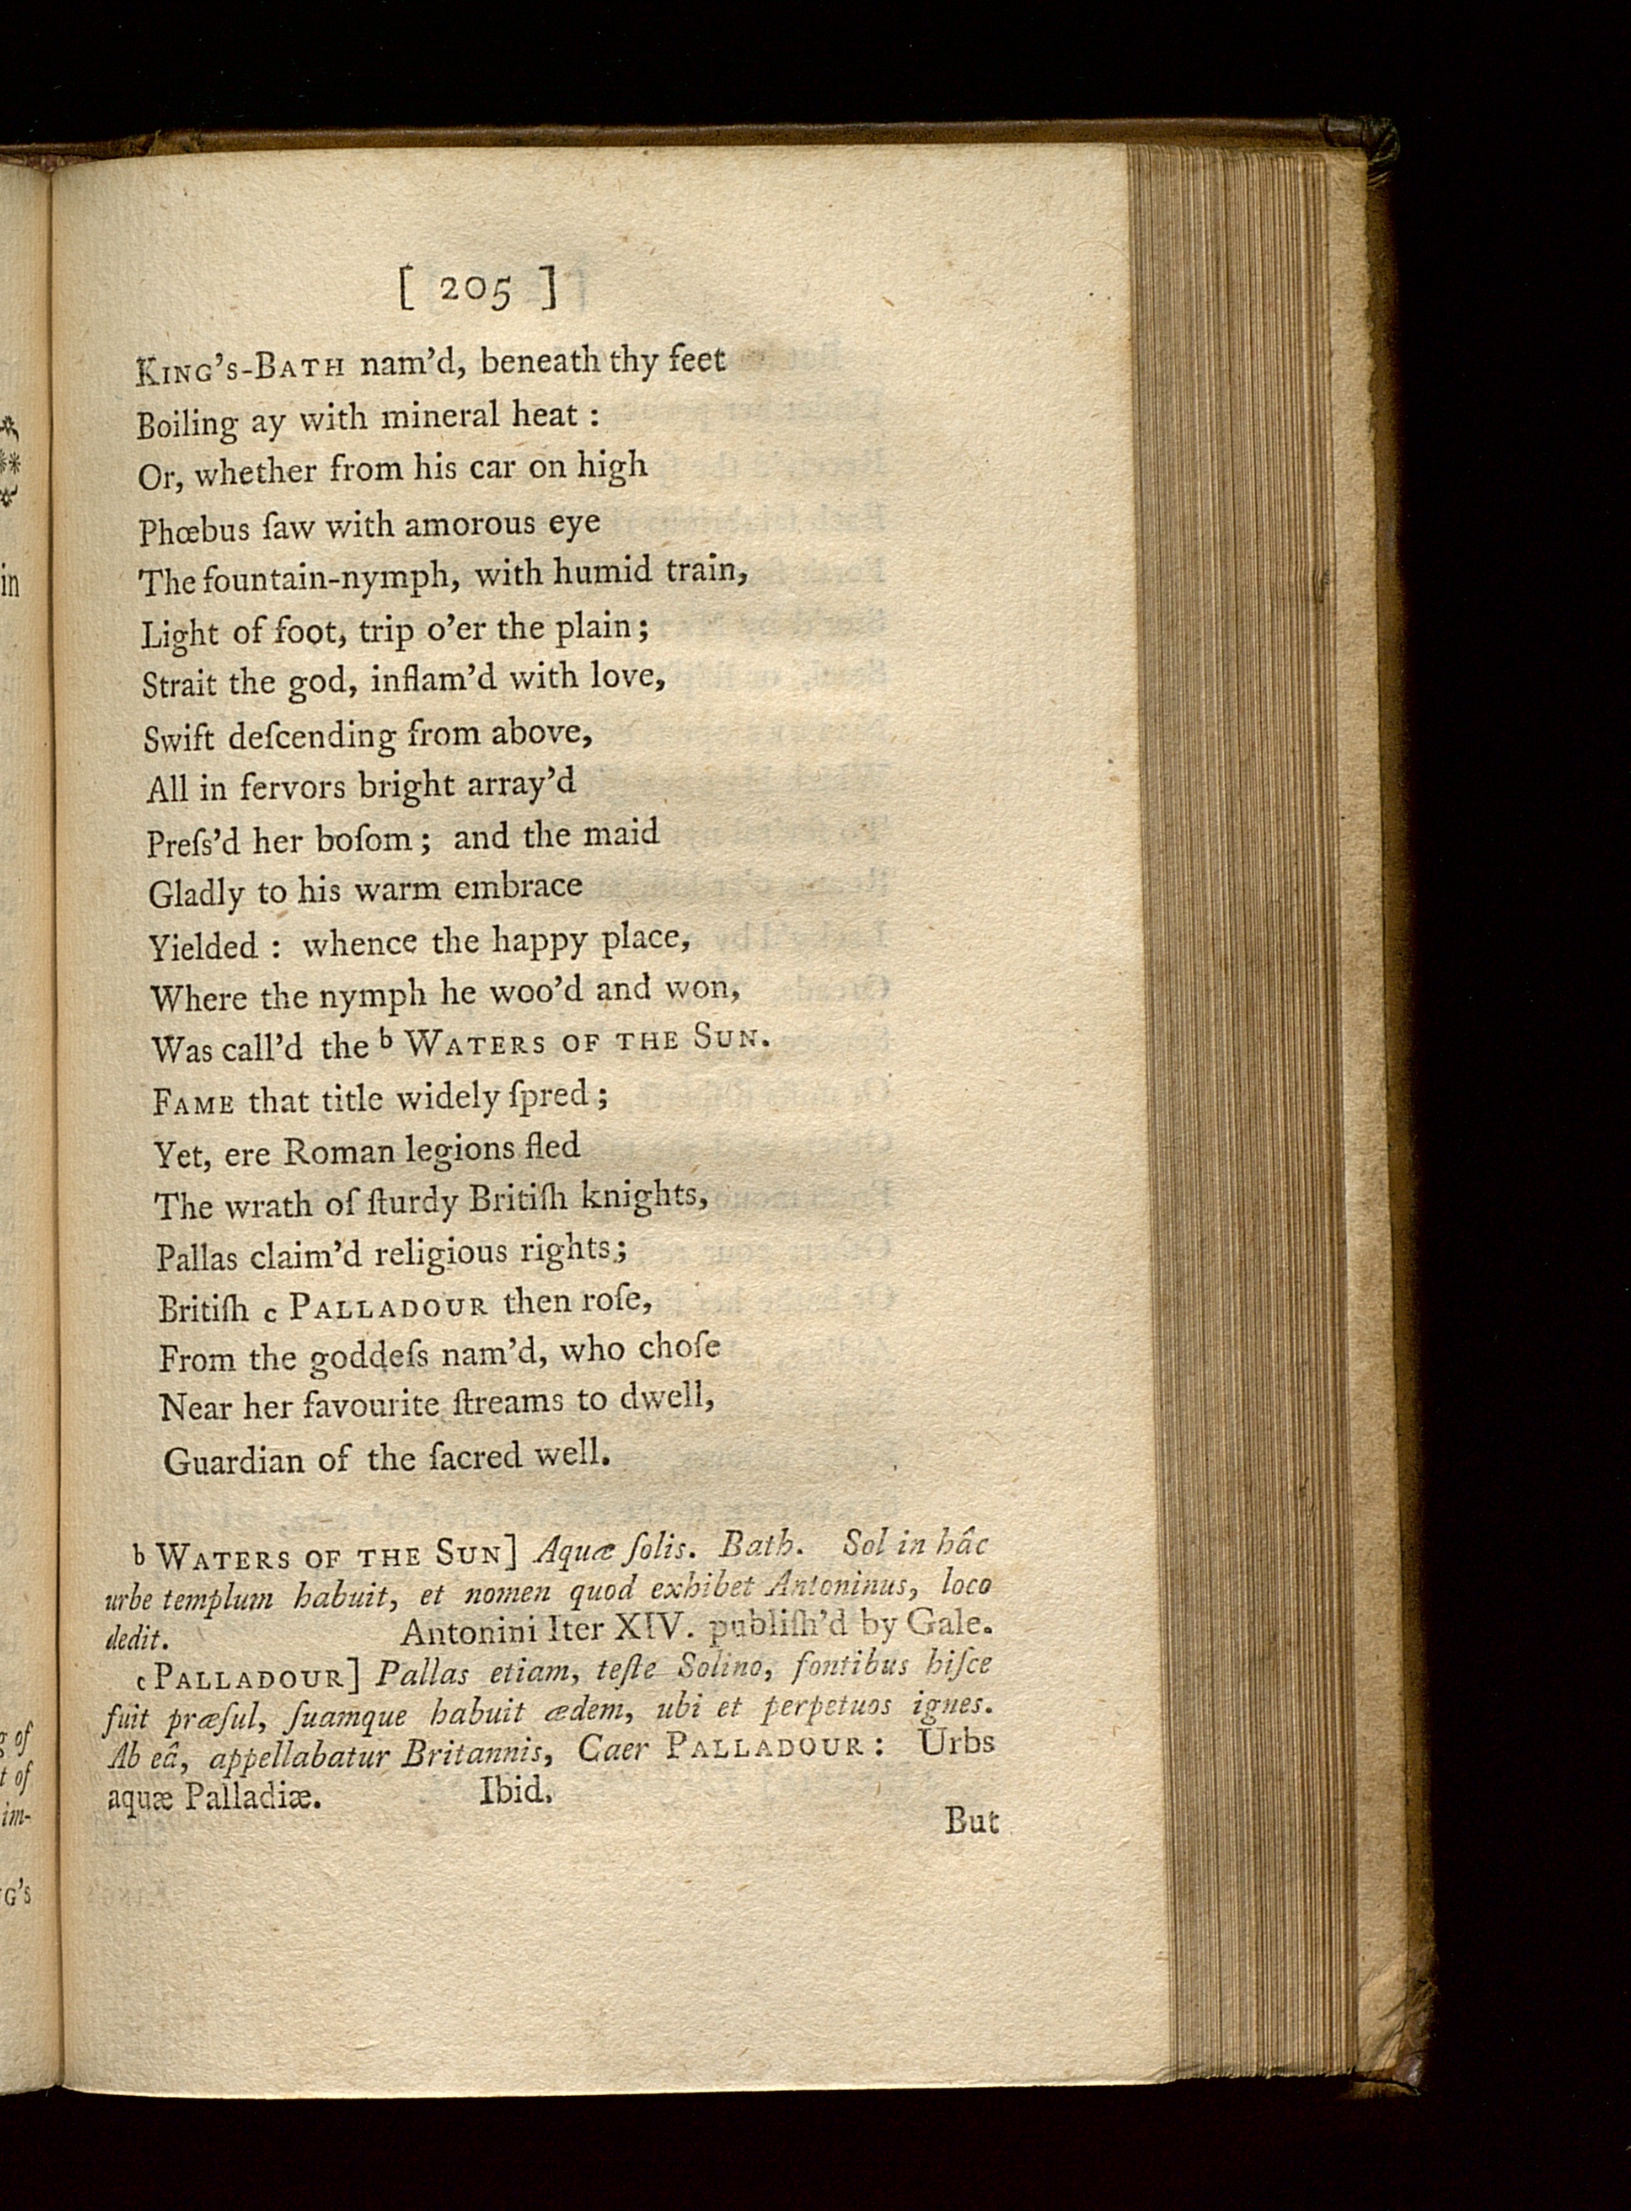 [ 205 ]
KING'S-BATH nam'd, beneath thy feet
Boiling ay with mineral heat :
Or, whether from his car on high
Phœbus ſaw with amorous eye
The fountain-nymph, with humid train,
Light of foot, trip o'er the plain;
Strait the god, inflam'd with love,
Swift deſcending from above,
All in fervors bright array'd
Preſs'd her boſom; and the maid
Gladly to his warm embrace
Yielded : whence the happy place,
Where the nymph he woo'd and won,
Was call'd the b WATERS OF THE SUN.
FAME that title widely ſpred;
Yet, ere Roman legions fled
The wrath of ſturdy Britiſh knights,
Pallas claim'd religious rights;
Britiſh c PALLADOUR then roſe,
From the goddeſs nam'd, who choſe
Near her favourite ſtreams to dwell,
Guardian of the ſacred well.
b WATERS OF THE SUN] Aquæ ſolis. Bath. Sol in hâc
urbe templum habuit, et nomen quod exhibet Antoninus, loco
dedit. Antonini Iter XIV. publiſh'd by Gale.
c PALLADOUR] Pallas etiam, teſte Solino, fontibus hiſce
fuit præſul, ſuamque habuit ædem, ubi et perpetuos ignes.
Ab eâ, appellabatur Britannis, Caer PALLADOUR: Urbs
aquæ Palladiæ. Ibid.
But
in
g of
t of
im-
G's